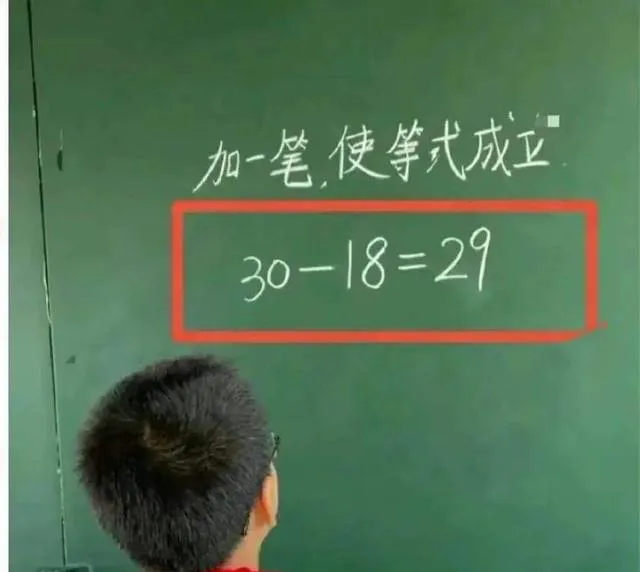 加一笔,使等式成立.
30-18=29